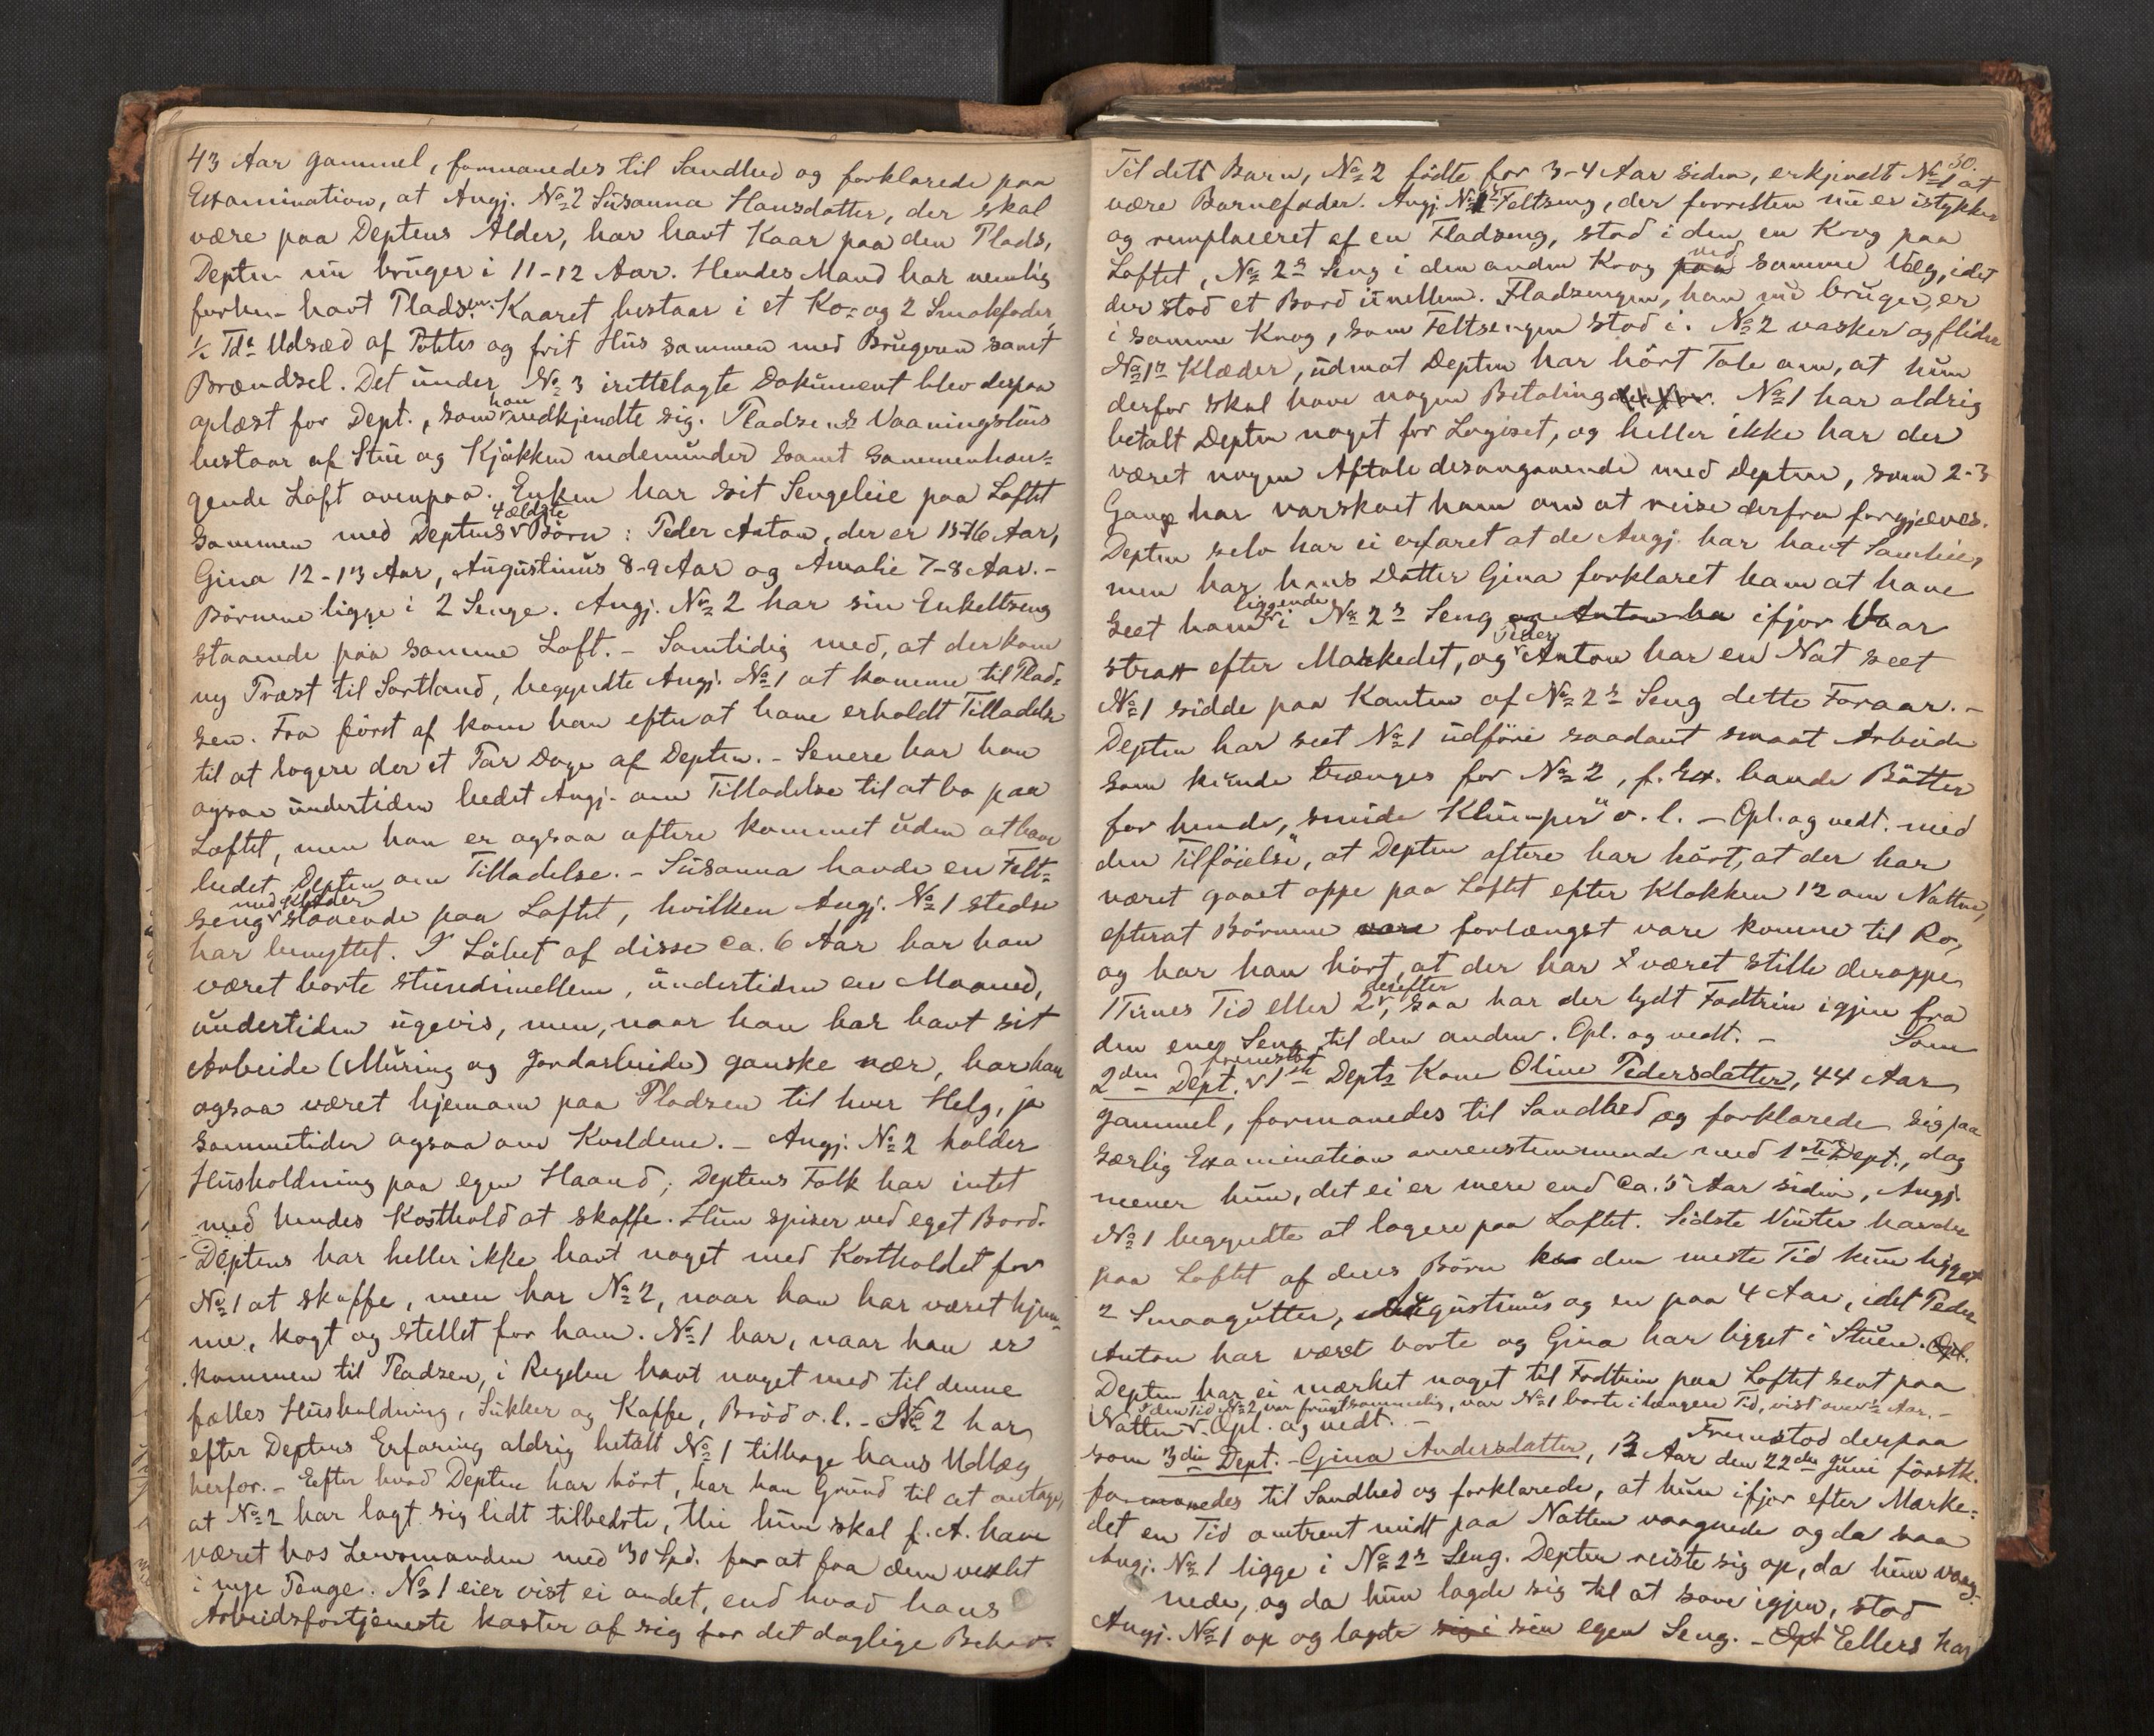 43 Aar gammel, formanedes til Sandhed og forklarede paa
Examination, at Angj. No 2 Susanna Hansdatter, der skal
være paa Deptens Alder, har havt Kaar paa den Plads,
Depten nu bruger i 11-12 Aar. Hendes Mand har nemlig
forhen havt Pladsen. Kaaret bestaar i et Ko- og 2 Smalefoder,
½ Tde Udsæd af Potetes og frit Hus sammen med Brugeren samt
Brændsel. Det under No 3 irettelagte Dokument blev derpaa
oplæst for Dept., som han vedkjendte sig. Pladsens Vaaningshus
bestaar af Stue og Kjøkken nedenunder samt sammenhæn-
gende Loft ovenpaa. Enken har sit Sengeleie paa Loftet
sammen med Deptens 4 ældste Børn: Peder Anton, der er 15-16 Aar,
Gina 12-13 Aar, Augustinus 8-9 Aar og Amalie 7-8 Aar. -
Børnene ligge i 2 Senge. Angj. No 2 har sin Enkeltseng
staaende paa samme Loft. - Samtidig med, at der kom
ny Præst til Sortland, begyndte Angj. No 1 at komme til Plad-
sen. Fra først af kom han efter at have erholdt Tilladelse
til at logere der et Par Dage af Depten. - Senere har han
ogsaa undertiden bedet Angj. om Tilladelse til at bo paa
Loftet, men han er ogsaa oftere kommet uden at have
bedet Depten om Tilladelse. - Susanna havde en Felt-
seng med Klæder staaende paa Loftet, hvilken Angj. No 1 stedse
har benyttet. I Løbet af disse ca. 6 Aar har han
været borte stundimellem, undertiden en Maaned,
undertiden ugevis, men, naar han har havt sit
Arbeide (Muring og Jordarbeide) ganske nær, har han
ogsaa været hjemom paa Pladsen til hver Helg, ja
sommetider ogsaa om Kveldene. - Angj. No 2 holder
Husholdning paa egen Haand; Deptens Folk har intet
med hendes Kosthold at skaffe. Hun spiser ved eget Bord.
- Deptens har heller ikke havt noget med Kostholdet for
No 1 at skaffe, men har No 2, naar han har været hjem-
me, kogt og stellet for ham. No 1 har, naar han er
kommen til Pladsen, i Regelen havt noget med til denne
fælles Husholdning, Sukker og Kaffe, Brød o.l. - No 2 har
efter Deptens Erfaring aldrig betalt No 1 tilbage hans Udlæg
herfor. - Efter hvad Depten har hørt, har han Grund til at antage,
at No 2 har lagt sig lidt tilbedste, thi hun skal f. A. have
været hos Lensmanden med 30 Spd. for at faa dem vexlet
i nye Penge. No 1 eier vist ei andet, end hvad hans
Arbeidsfortjeneste kaster af sig for det daglige Behov.
30.
Til dette Barn, No 2 fødte for 3-4 Aar siden, erkjendte No 1 at
være Barnefader. Angj. No 2s Feltseng, der forresten nu er istykker
og remplaceret af en Fladseng, stod i den en Krog paa
Loftet, No 2s Seng i den anden Krog paa ved samme Væg, idet
der stod et Bord imellem. Fladsengen, han nu bruger, er
i samme Krog, som Feltsengen stod i. No 2 vasker og flider
No 1s Klæder, uden at Depten har hørt Tale om, at hun
derfor skal have nogen Betaling derfor. No 1 har aldrig
betalt Depten noget for Logiset, og heller ikke har der
været nogen Aftale desangaaende med Depten, som 2-3
Gange har varskoet ham om at reise derfra forgjæves.
Depten selv har ei erfaret at de Angj. har havt Samleie,
men har hans Datter Gina forklaret ham at have
seet ham liggende i No 2s Seng og Anton ha ifjor Vaar
strax efter Markedet, og Peder Anton har en Nat seet
No 1 sidde paa Kanten af No 2s Seng dette Foraar. -
Depten har seet No 1 udføre saadant smaat Arbeide
som kunde trænges for No 2, f. Ex. baande Bøtter
for hende, smide "Klumper" o. l. - Opl. og vedt. med
den Tilføielse, at Depten oftere har hørt, at der har
været gaaet oppe paa Loftet efter Klokken 12 om Natten,
efterat Børnene vare forlængst vare komne til Ro,
og har han hørt, at der har været stille deroppe
1 Times Tid eller 2 derefter, saa har der lydt Fodtrin igjen fra
den ene Seng til den anden. Opl. og vedt. - Som
2den Dept. fremstod 1ste Depts Kone Oline Pedersdatter, 44 Aar
gammel, formanedes til Sandhed og forklarede sig paa
særlig Examination overensstemmende med 1ste Dept., dog
mener hun, det ei er mere end ca. 5 Aar siden, Angj.
No 1 begyndte at logere paa Loftet. Sidste Vinter havde
paa Loftet af deres Børn har den meste Tid kun ligget
2 Smaagutter, Augustinus og en paa 4 Aar, idet Peder
Anton har været borte og Gina har ligget i Stuen. Opl.
Depten har ei mærket noget til Fodtrin paa Loftet sent paa
I den Tid No 2 var frugtsommelig, var No 1 borte i længere Tid, vist over ½ Aar. -
Natten. Opl. og vedt. - Fremstod derpaa
som 3die Dept. Gina Andersdatter, 13 Aar den 22de Juni førstk.
formanedes til Sandhed og forklarede, at hun ifjor efter Marke-
det en Tid omtrent midt paa Natten vaagnede og da saa
Angj. No 1 ligge i No 2s Seng. Depten reiste sig op, da hun vaag-
nede, og da hun lagde sig til at sove igjen, stod
Angj. No 1 op og lagde sig i sin egen Seng. - Opl Ellers har